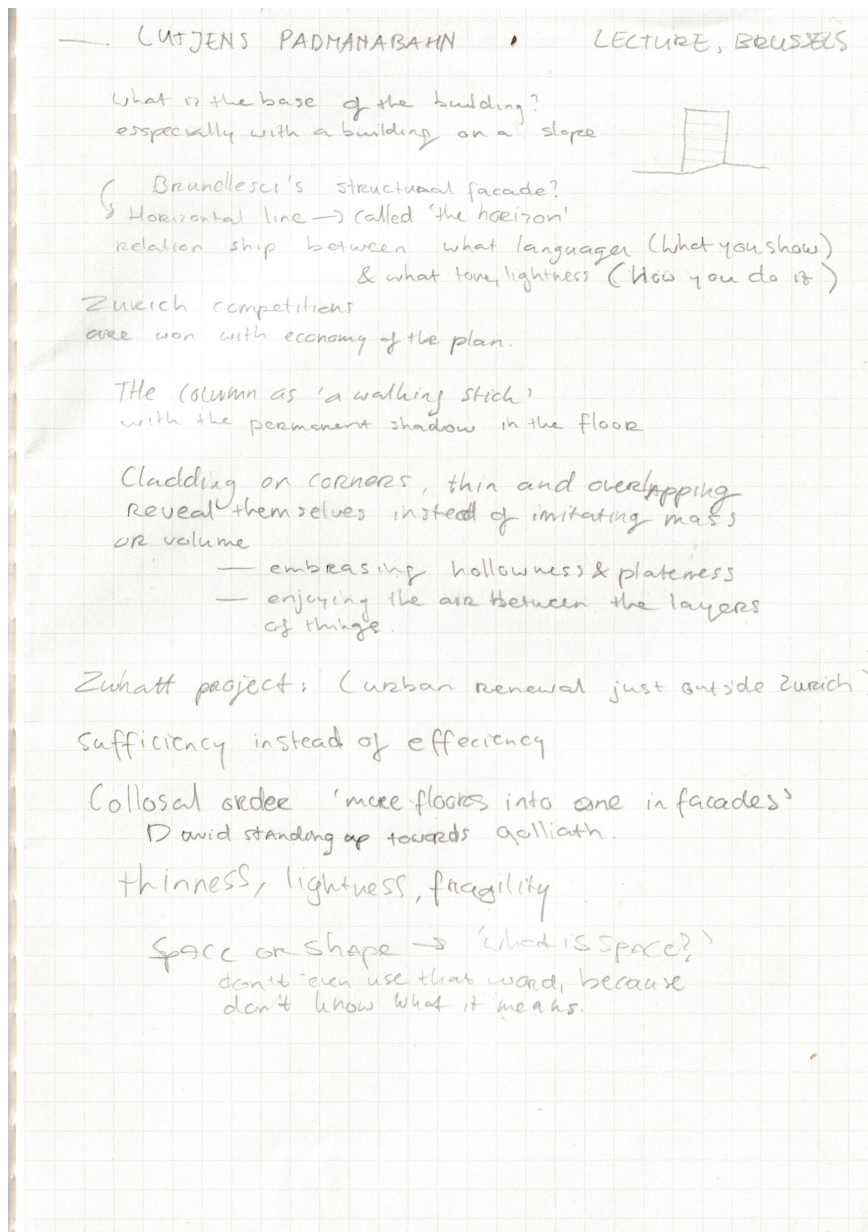 — LUTJENS PADMANABAHN • LECTURE, BRUSSELS
what is the base of the building?
esspecially with a building on a slope
Brunellesci's structural facade?
Horizontal line → called 'the horizon'
relation ship between what languager (what you show)
& what tone, lightness (How you do it)
Zurich competitions
are won with economy of the plan.
THe column as 'a walking stick'
with the permanent shadow in the floor
Cladding on corners, thin and overlapping
reveal themselves instead of imitating mass
or volume
— embrasing hollowness & plateness
— enjoying the air between the layers
of things.
Zwhatt project: (urban renewal just outside Zurich)
sufficiency instead of effeciency
Collosal order 'more floors into one in facades'
David standing up towards golliath.
thinness, lightness, fragility
space or shape → 'what is space?'
don't even use that word, because
don't know what it means.